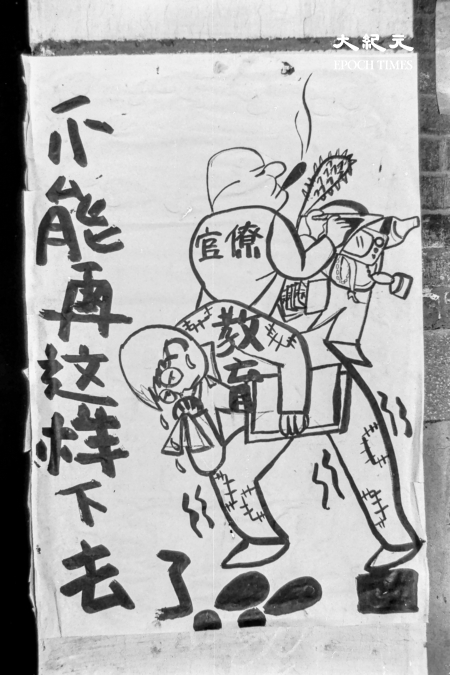 大紀元
EPOCH TIMES
不能再这样下去了
官僚
教育